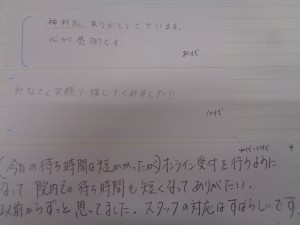 神対応 ありがとうございます。
心から感謝です
30代
みなさん笑顔で接してくれました
10代
(今日の待ち時間は短かかったが)オンライン受付を行うように
なって 院内での待ち時間も短くなってありがたい。
以前からずっと思ってました。スタッフの対応はすばらしいです。